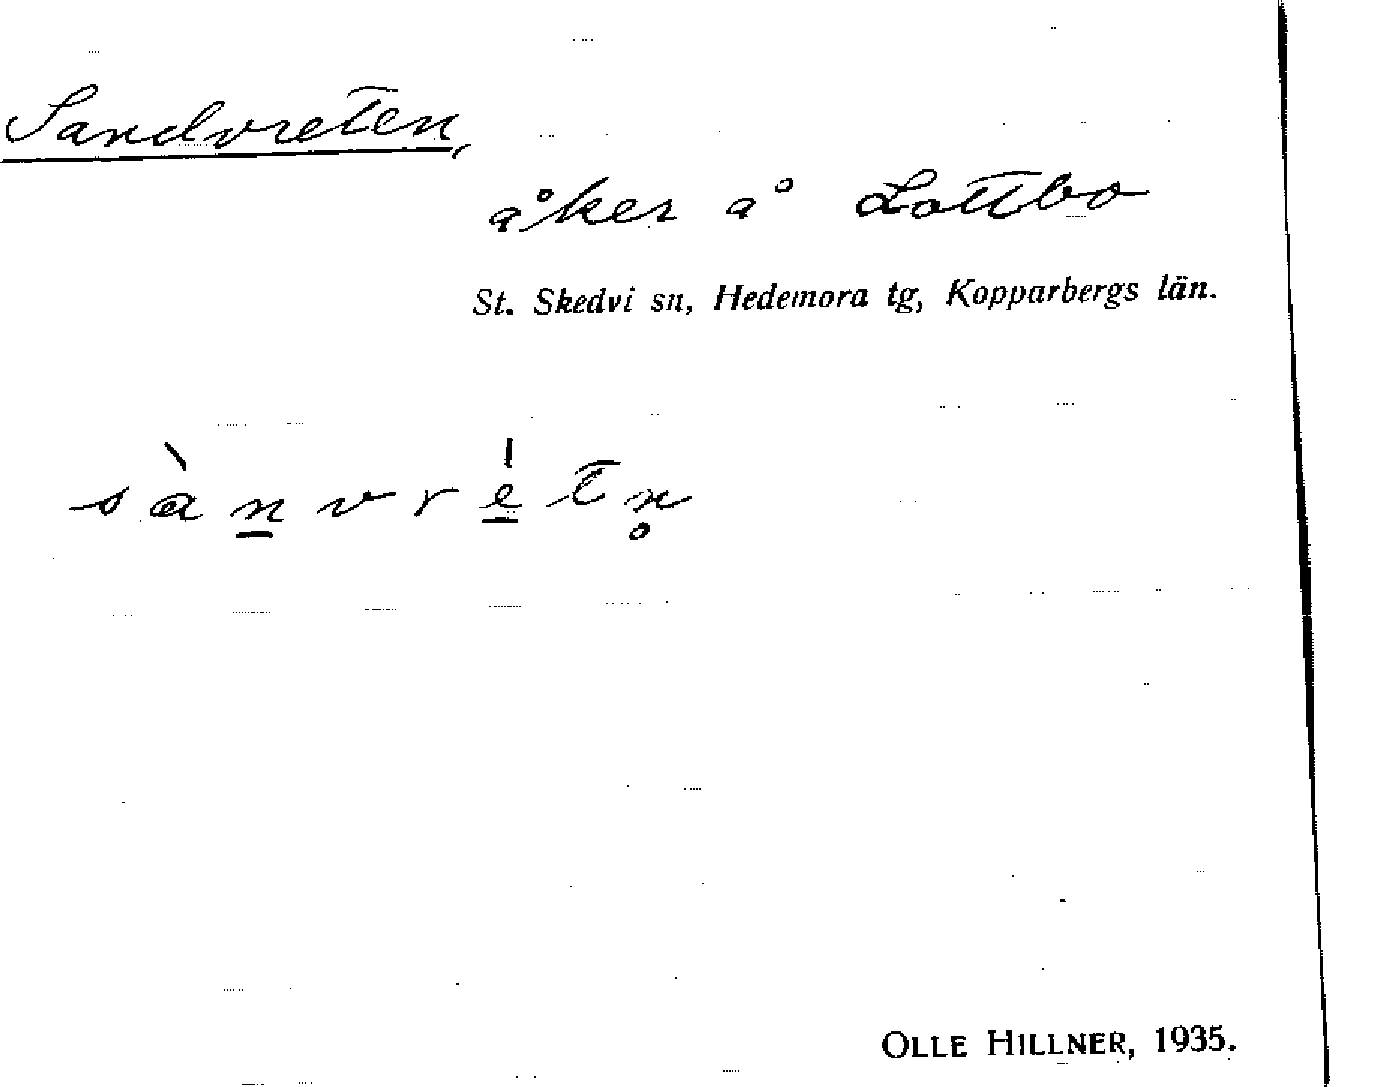 Sandvreten,
åker å Lottbo
St. Skedvi sn, Hedemora tg, Kopparbergs län.
sàn̲vrè̲tn̥
OLLE HILLNER, 1935.